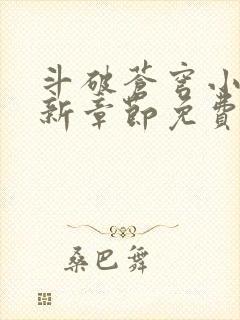 斗破苍穹小
新章節免費
桑巴舞